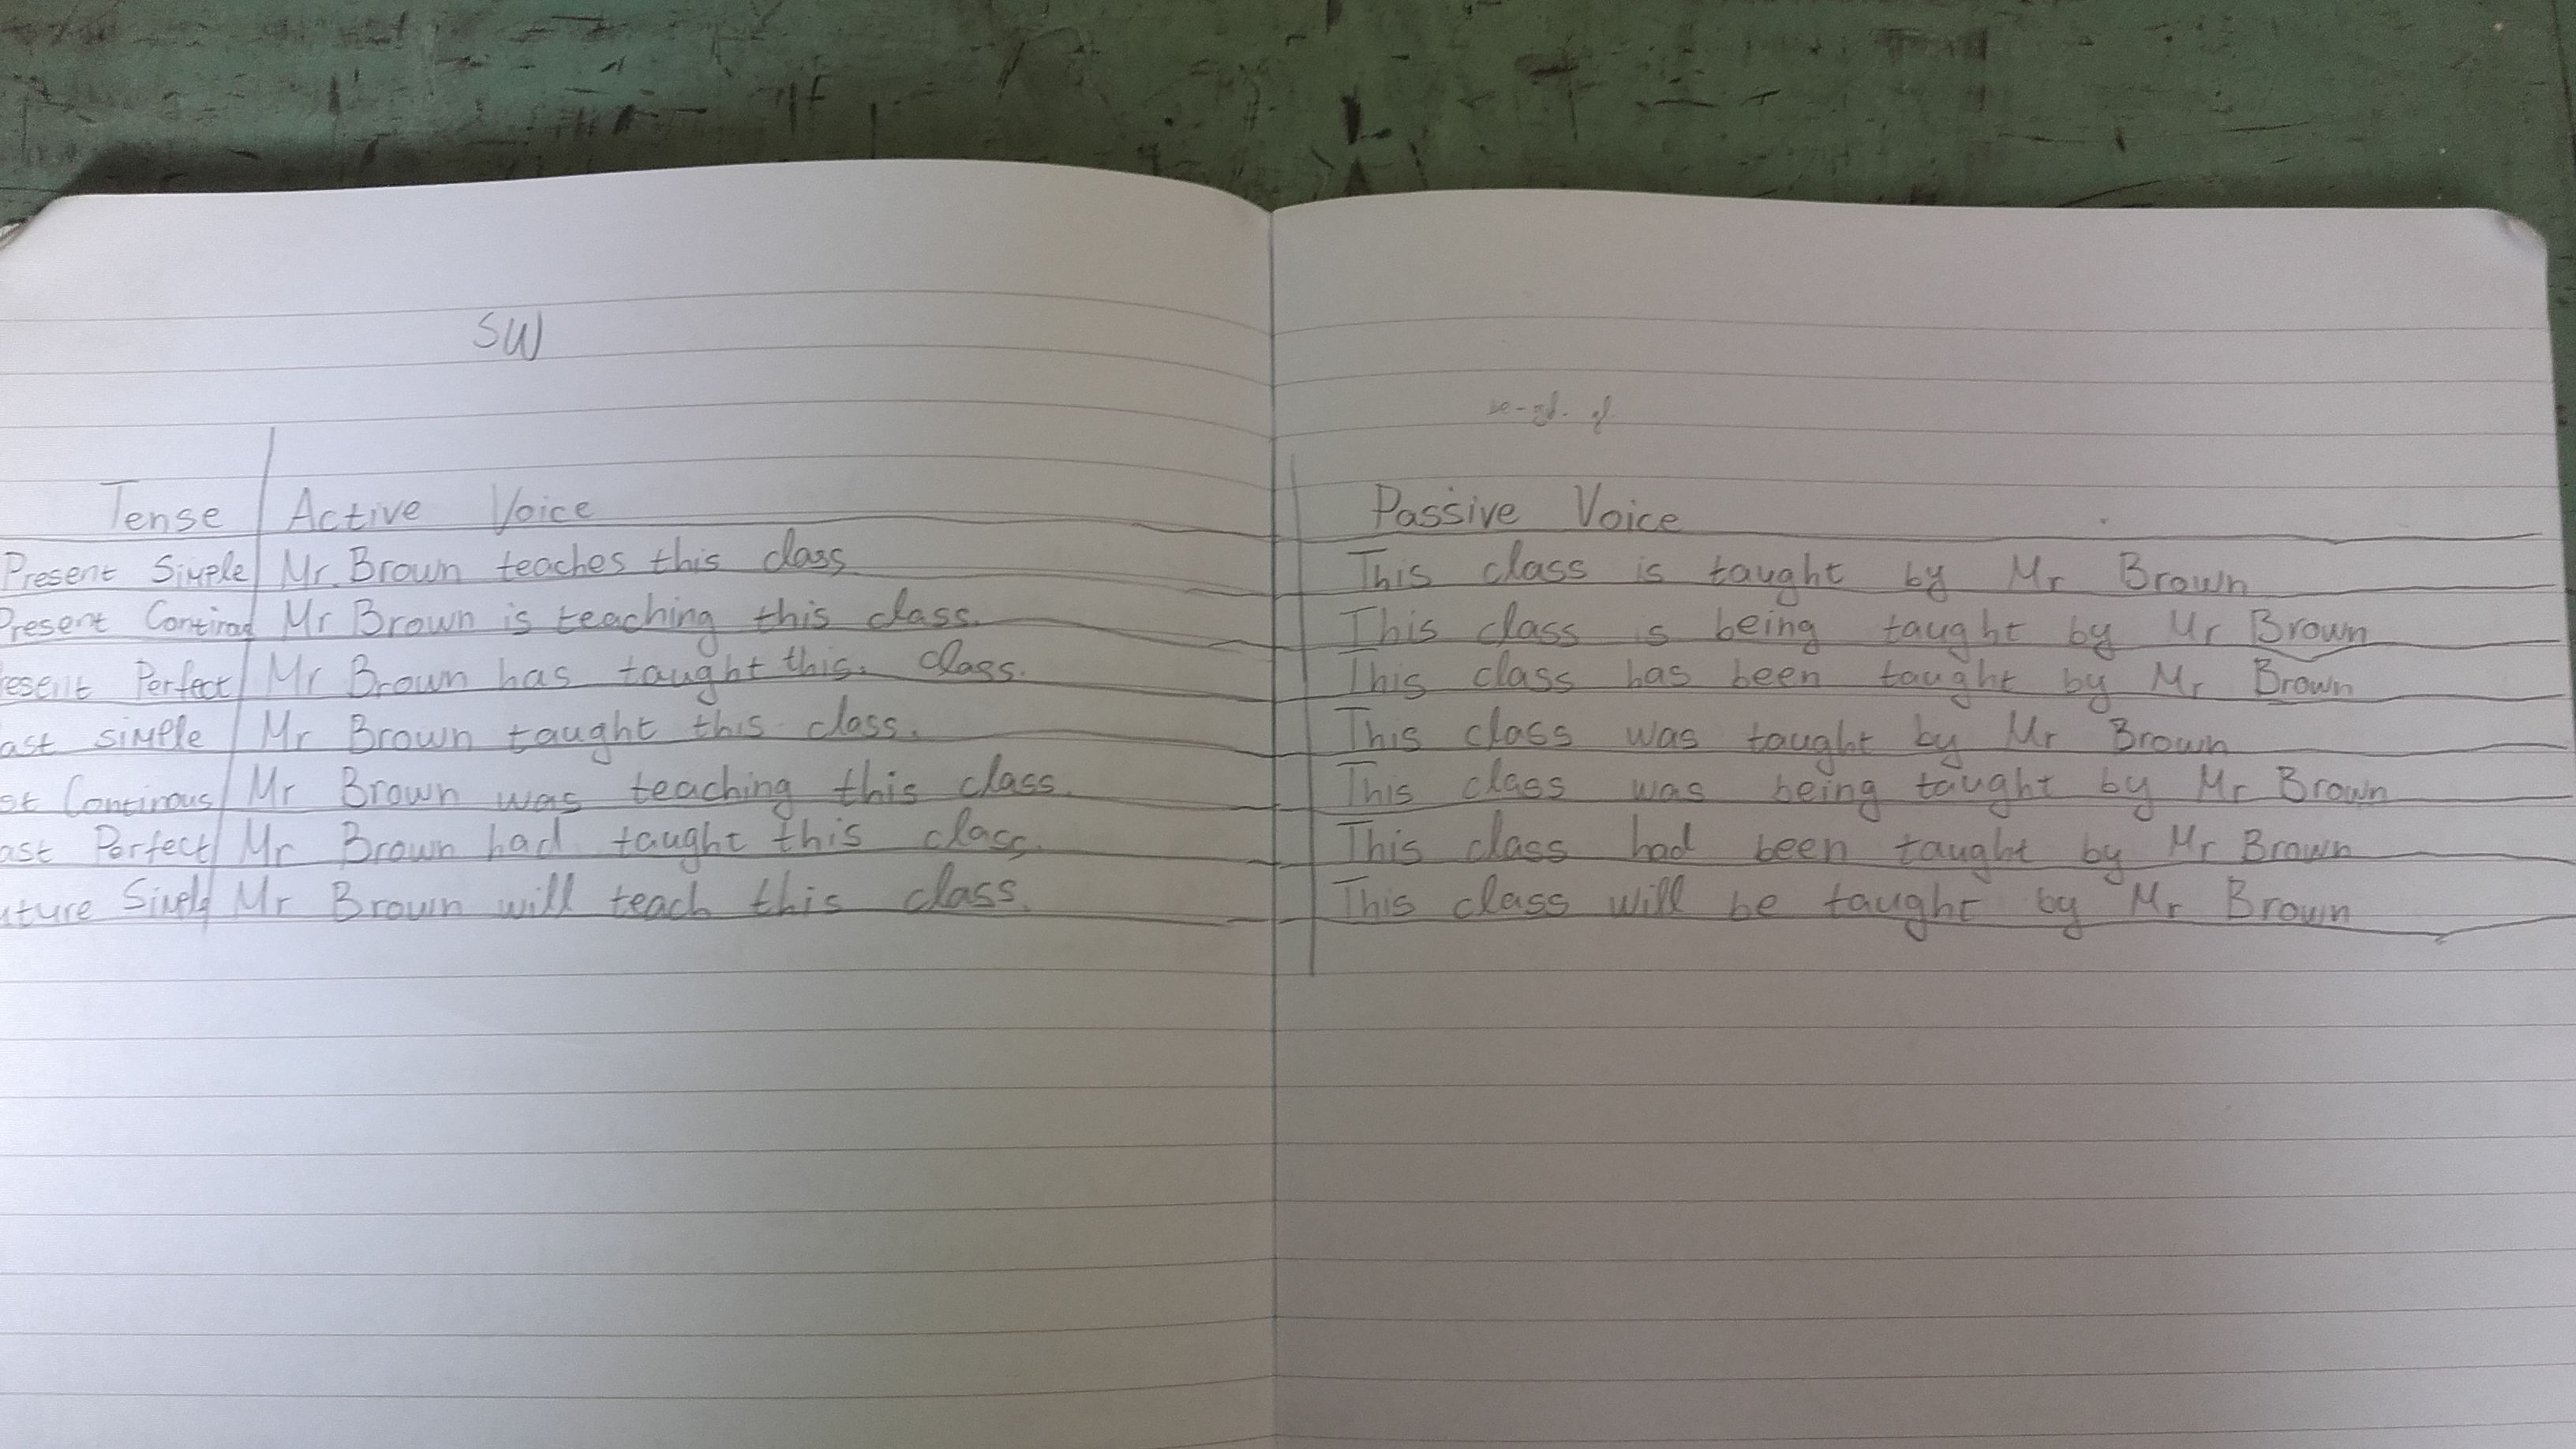 SW
Tense Active Voice Passive Voice
Present Simple Mr. Brown teaches this class This class is taught by Mr Brown
Present Mr Brown is teaching this class. This class is being taught by Mr Brown
esent Perfect Mr Brown has taught this. class. This class has been taught by Mr Brown
ast simple Mr Brown taught this class. This class was taught by Mr Brown
st Continous Mr Brown was teaching this class. This class was being taught by Mr Brown
ast Perfect Mr Brown had taught this class. This class had been taught by Mr Brown
uture Mr Brown will teach this class. This class will be taught by Mr Brown